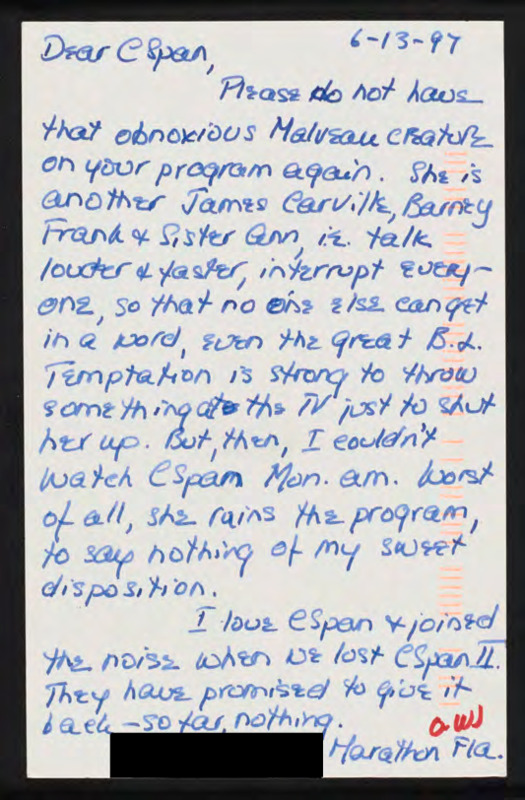 6-13-97
Dear CSpan,
Please do not have
that obnoxious Malveau creature
on your program again. She is
another James Carville, Barney
Frank & Sister Ann, i.e. talk
louder & faster, interrupt every-
one, so that no one else can get
in a word, even the great B.L.
Temptation is strong to throw
something at the TV just to shut
her up. But, then, I couldn't
watch CSpam Mon. am. Worst
of all, she ruins the program,
to say nothing of my sweet
disposition.
I love CSpan & joined
the noise when we lost CSpan II.
They have promised to give it
back – so far, nothing.
Marathon Fla.